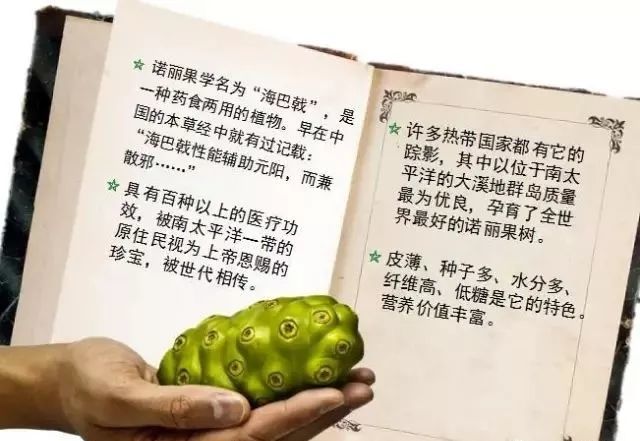 诺丽果学名为“海巴戟”，是
一种药食两用的植物。早在中
国的本草经中就有过记载：
“海巴戟性能辅助元阳，而兼
散邪……”
具有百种以上的医疗功
效，被南太平洋一带的
原住民视为上帝恩赐的
珍宝，被世代相传。
许多热带国家都有它的
踪影，其中以位于南太
平洋的大溪地群岛质量
最为优良，孕育了全世
界最好的诺丽果树。
皮薄、种子多、水分多、
纤维高、低糖是它的特色。
营养价值丰富。